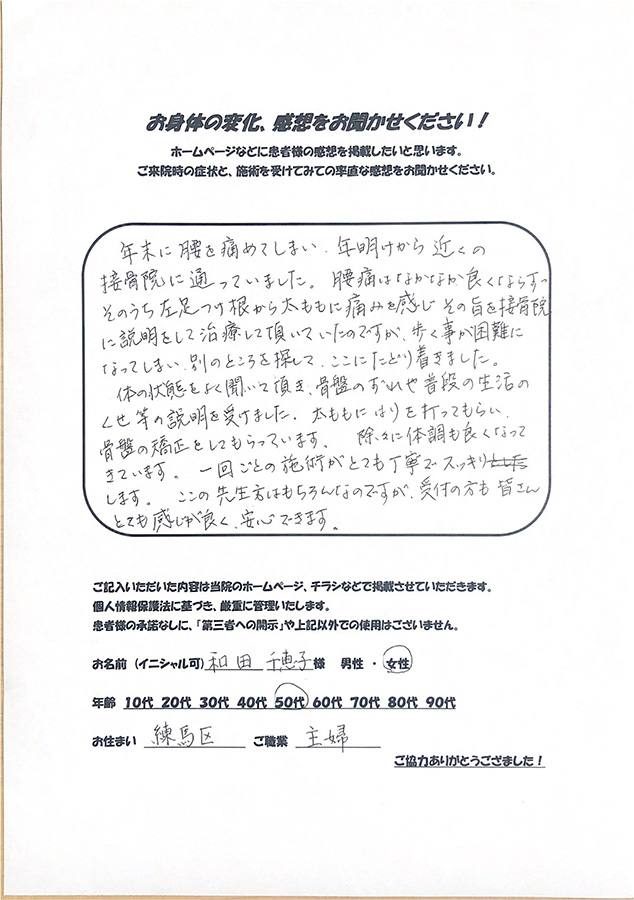 お身体の変化、感想をお聞かせください！
ホームページなどに患者様の感想を掲載したいと思います。
ご来院時の症状と、施術を受けてみての率直な感想をお聞かせください。
年末に腰を痛めてしまい、年明けから近くの
接骨院に通っていました。腰痛はなかなか良くならずっ
そのうち左足つけ根から太ももに痛みを感じその旨を接骨院
に説明をして治療して頂いていたのですが、歩く事が困難に
なってしまい、別のところを探して、ここにたどり着きました。
体の状態をよく聞いて頂き、骨盤のずれや普段の生活の
くせ等の説明を受けました。太ももにはりを打ってもらい、
骨盤の矯正をしてもらっています。除々に体調も良くなって
きています。一回ごとの施術がとても丁寧でスッキリとした
します。ここの先生方はもちろんなのですが、受付の方も皆さん
とても感じが良く、安心できます。
ご記入いただいた内容は当院のホームページ、チラシなどで掲載させていただきます。
個人情報保護法に基づき、厳重に管理いたします。
患者様の承諾なしに、「第三者への開示」や上記以外での使用はございません。
お名前（イニシャル可）和田 千恵子様 男性・女性
年齢 10代 20代 30代 40代 50代 60代 70代 80代 90代
お住まい 練馬区 ご職業 主婦
ご協力ありがとうござました！